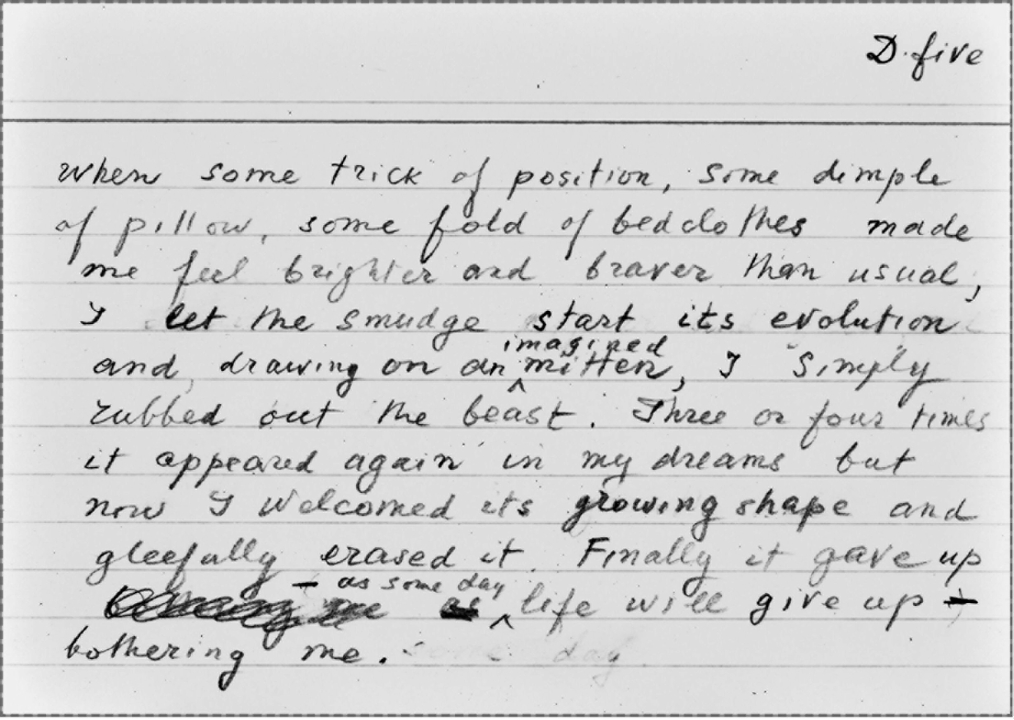 D. five
when some trick of position, some dimple
of pillow, some fold of bedclothes made
me feel brighter and braver than usual,
I let the smudge start its evolution
imagined
and, drawing on an mitten, I simply
rubbed out the beast. Three or four times
it appeared again in my dreams but
now I welcomed its growing shape and
gleefully erased it. Finally it gave up
– as some day
life will give up –
bothering me. some day